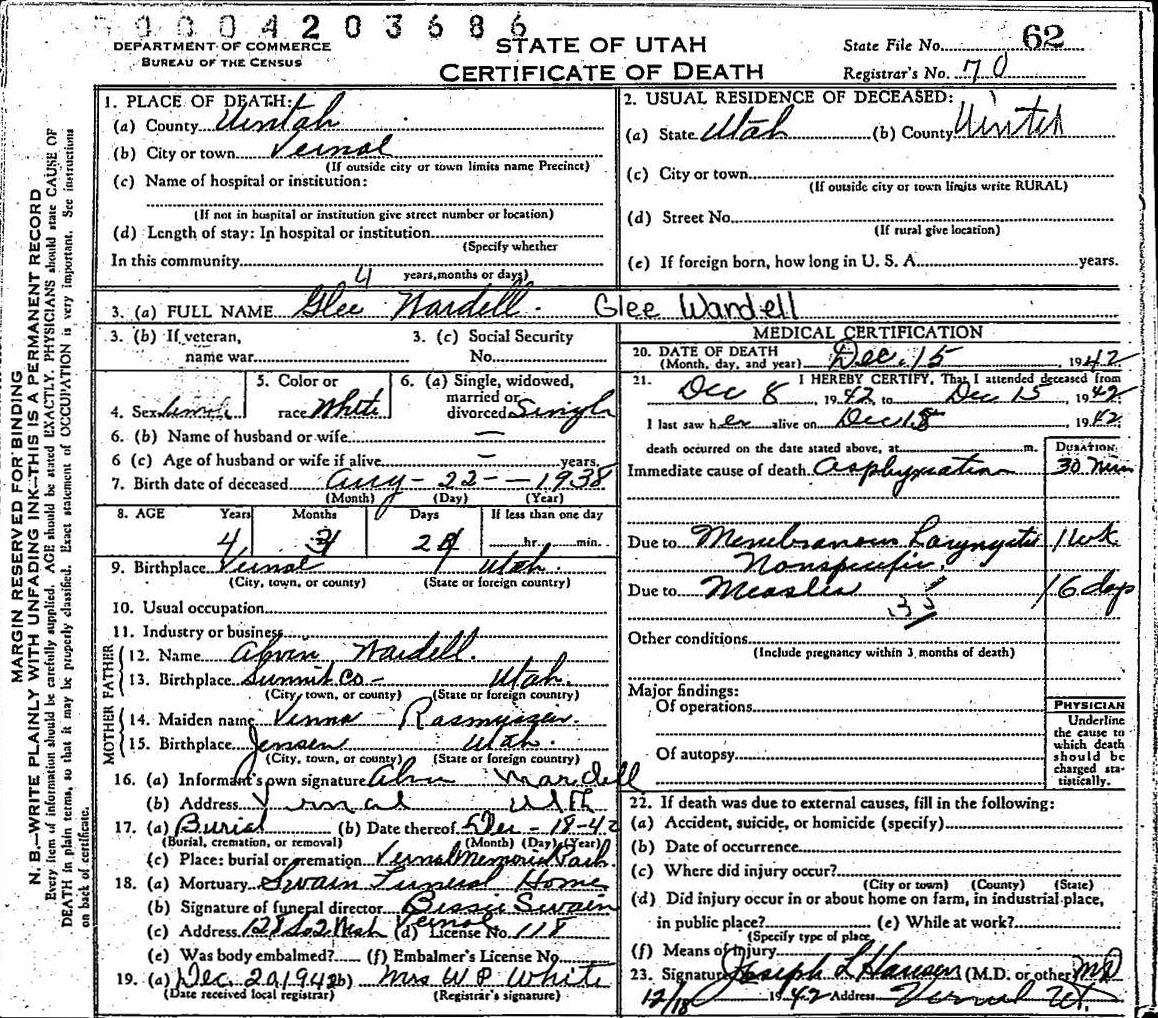 0004203686
DEPARTMENT OF COMMERCE
BUREAU OF THE CENSUS
STATE OF UTAH
CERTIFICATE OF DEATH
State File No. 62
Registrar's No. 70
MARGIN RESERVED FOR BINDING
N. B.—WRITE PLAINLY WITH UNFADING INK—THIS IS A PERMANENT RECORD
Every item of information should be carefully supplied. AGE should be stated EXACTLY. PHYSICIANS should state CAUSE OF
DEATH in plain terms, so that it may be properly classified. Exact statement of OCCUPATION is very important. See instructions
on back of certificate.
1. PLACE OF DEATH:
(a) County Uintah
(b) City or town Vernal
(If outside city or town limits name Precinct)
(c) Name of hospital or institution:
(If not in hospital or institution give street number or location)
(d) Length of stay: In hospital or institution
(Specify whether
In this community 4
years, months or days)
2. USUAL RESIDENCE OF DECEASED:
(a) State Utah (b) County Uintah
(c) City or town
(If outside city or town limits write RURAL)
(d) Street No.
(If rural give location)
(e) If foreign born, how long in U. S. A. years.
3. (a) FULL NAME Glee Wardell. Glee Wardell
3. (b) If veteran,
name war
3. (c) Social Security
No.
4. Sex
5. Color or
race White
6. (a) Single, widowed,
married or
divorced Single
6. (b) Name of husband or wife —
6 (c) Age of husband or wife if alive — years.
7. Birth date of deceased Aug - 22 - - 1938
(Month) (Day) (Year)
8. AGE Years Months Days If less than one day
4 3 hr. min.
9. Birthplace Vernal Utah.
(City, town, or county) (State or foreign country)
10. Usual occupation
11. Industry or business
FATHER
12. Name Alvin Wardell.
13. Birthplace Summit Co - Utah.
(City, town, or county) (State or foreign country)
MOTHER
14. Maiden name Venna Rasmussen.
15. Birthplace Jensen Utah.
(City, town, or county) (State or foreign country)
16. (a) Informant's own signature Alvin Wardell
(b) Address Vernal Utah
17. (a) Burial (b) Date thereof Dec - 18-42
(Burial, cremation, or removal) (Month) (Day) (Year)
(c) Place: burial or cremation Vernal Memorial Park.
18. (a) Mortuary Swain Funeral Home
(b) Signature of funeral director Bessie Swain
(c) Address 128 So 2 West Vernal (d) License No. 118
(e) Was body embalmed? (f) Embalmer's License No.
19. (a) Dec. 20 1942 (b) Mrs W P White
(Date received local registrar) (Registrar's signature)
MEDICAL CERTIFICATION
20. DATE OF DEATH
(Month, day, and year) Dec. 15 1942
21. I HEREBY CERTIFY, That I attended deceased from
Dec 8, 1942 to Dec 15, 1942
I last saw her alive on Dec 15, 1942
death occurred on the date stated above, at m. DURATION
Immediate cause of death Asphyxiation 30 min
Due to Membranous Laryngitis 1 wk
Nonspecific
Due to Measles 16 days
Other conditions
(Include pregnancy within 3 months of death)
Major findings:
Of operations
Of autopsy
PHYSICIAN
Underline
the cause to
which death
should be
charged sta-
tistically.
22. If death was due to external causes, fill in the following:
(a) Accident, suicide, or homicide (specify)
(b) Date of occurrence
(c) Where did injury occur?
(City or town) (County) (State)
(d) Did injury occur in or about home on farm, in industrial place,
in public place? (e) While at work?
(Specify type of place
(f) Means of injury
23. Signature Joseph L Hansen (M.D. or other) MD
12/18 1942 Address Vernal Ut.